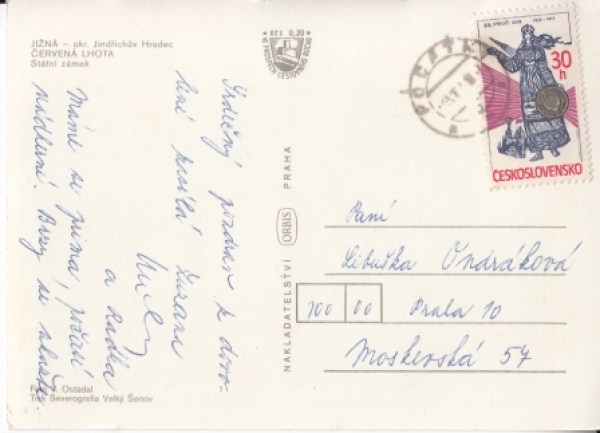 JIŽNÁ – okr. Jindřichův Hradec
ČERVENÁ LHOTA
Státní zámek
Kčs 0,20
Srdečný pozdrav z dovo-
lené posílá Zuzana
a Radka
Máme se prima, počasí
nádherné. Brzy se
POČÁTKY
30h
ČESKOSLOVENSKO
NAKLADATELSTVÍ ORBIS PRAHA
Paní
Libuška Ondráková
100 00 Praha 10
Moskevská 57
Foto J. Ostádal
Tisk Severografia Velký Šenov